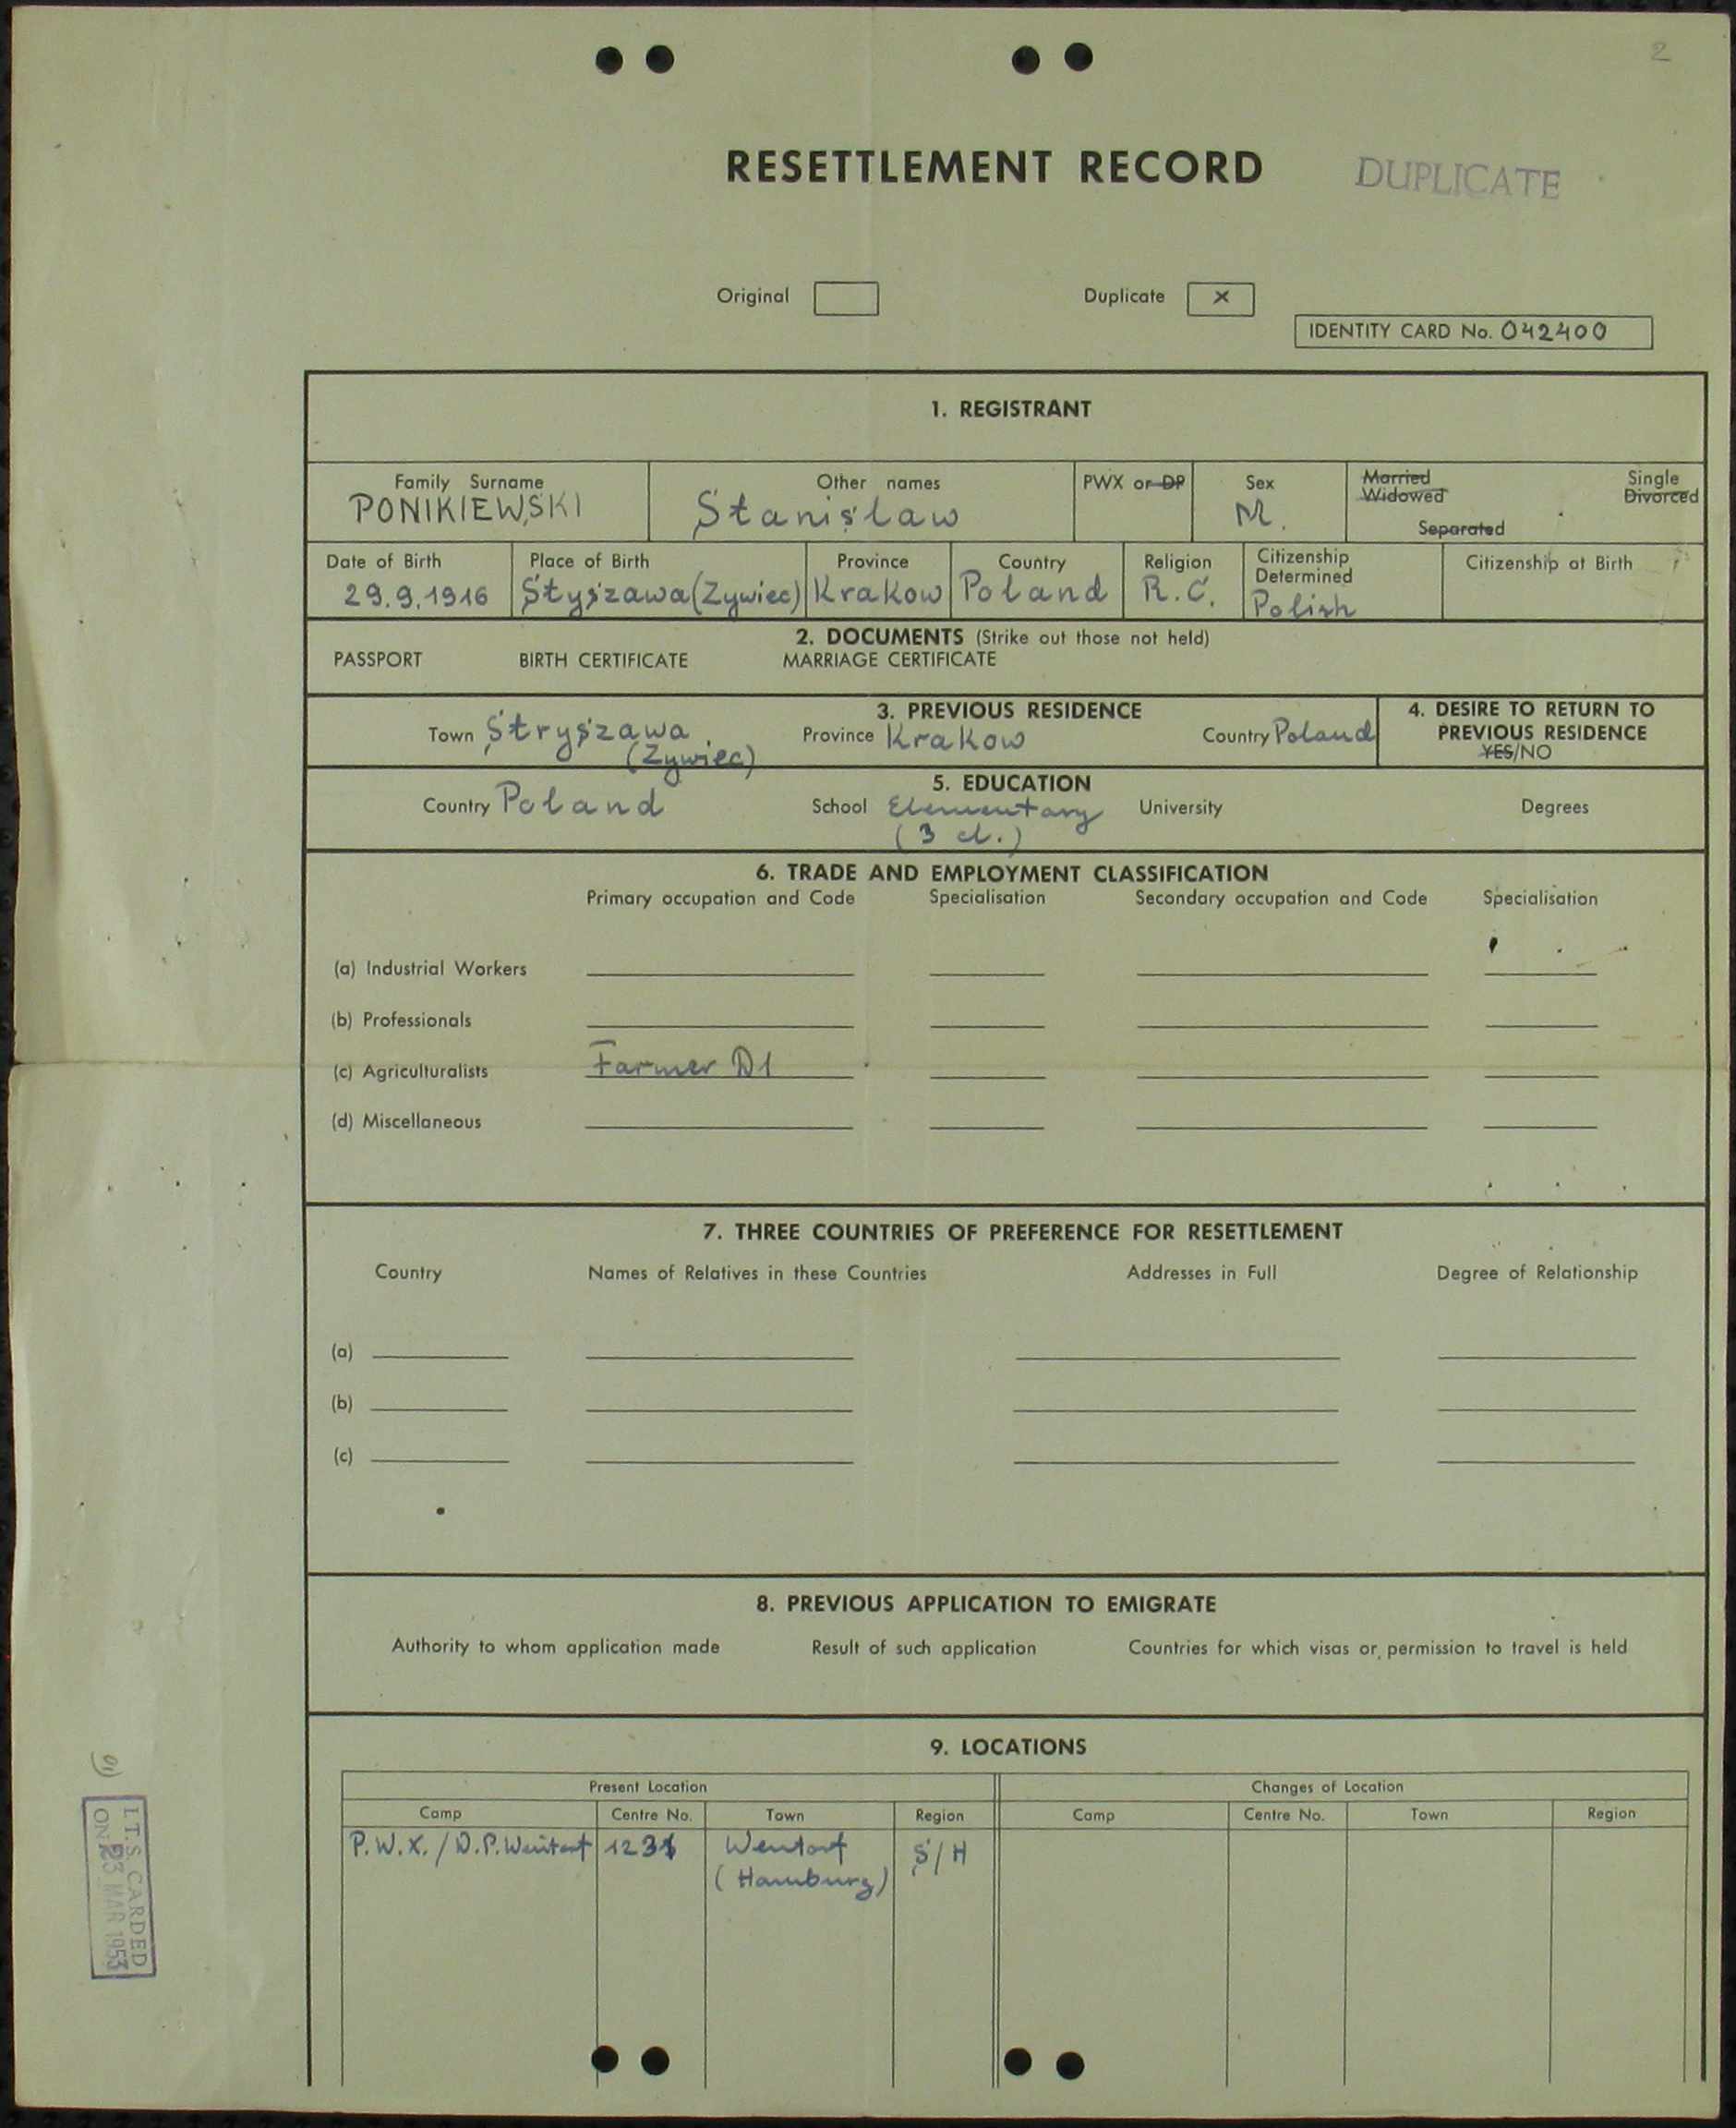 2
RESETTLEMENT RECORD
DUPLICATE
Original
Duplicate x
IDENTITY CARD No. 042400
1. REGISTRANT
Family Surname Other names PWX or DP Sex Married Single
Widowed Divorced
Separated
PONIKIEWSKI Stanisław M.
Date of Birth Place of Birth Province Country Religion Citizenship Determined Citizenship at Birth
29.9.1916 Styszawa (Zywiec) Krakow Poland R.C. Polish
2. DOCUMENTS (Strike out those not held)
PASSPORT BIRTH CERTIFICATE MARRIAGE CERTIFICATE
3. PREVIOUS RESIDENCE
Town Stryszawa (Zywiec) Province Krakow Country Poland
4. DESIRE TO RETURN TO
PREVIOUS RESIDENCE
YES/NO
5. EDUCATION
Country Poland School Elementary University Degrees
(3 cl.)
6. TRADE AND EMPLOYMENT CLASSIFICATION
Primary occupation and Code Specialisation Secondary occupation and Code Specialisation
(a) Industrial Workers
(b) Professionals
(c) Agriculturalists Farmer D1
(d) Miscellaneous
7. THREE COUNTRIES OF PREFERENCE FOR RESETTLEMENT
Country Names of Relatives in these Countries Addresses in Full Degree of Relationship
(a)
(b)
(c)
8. PREVIOUS APPLICATION TO EMIGRATE
Authority to whom application made Result of such application Countries for which visas or permission to travel is held
9. LOCATIONS
Present Location Changes of Location
Camp Centre No. Town Region Camp Centre No. Town Region
P.W.X. / D.P. Wentorf Wentorf S/H
(Hamburg)
I.T.S. CARDED
ON 23 MAR 1953